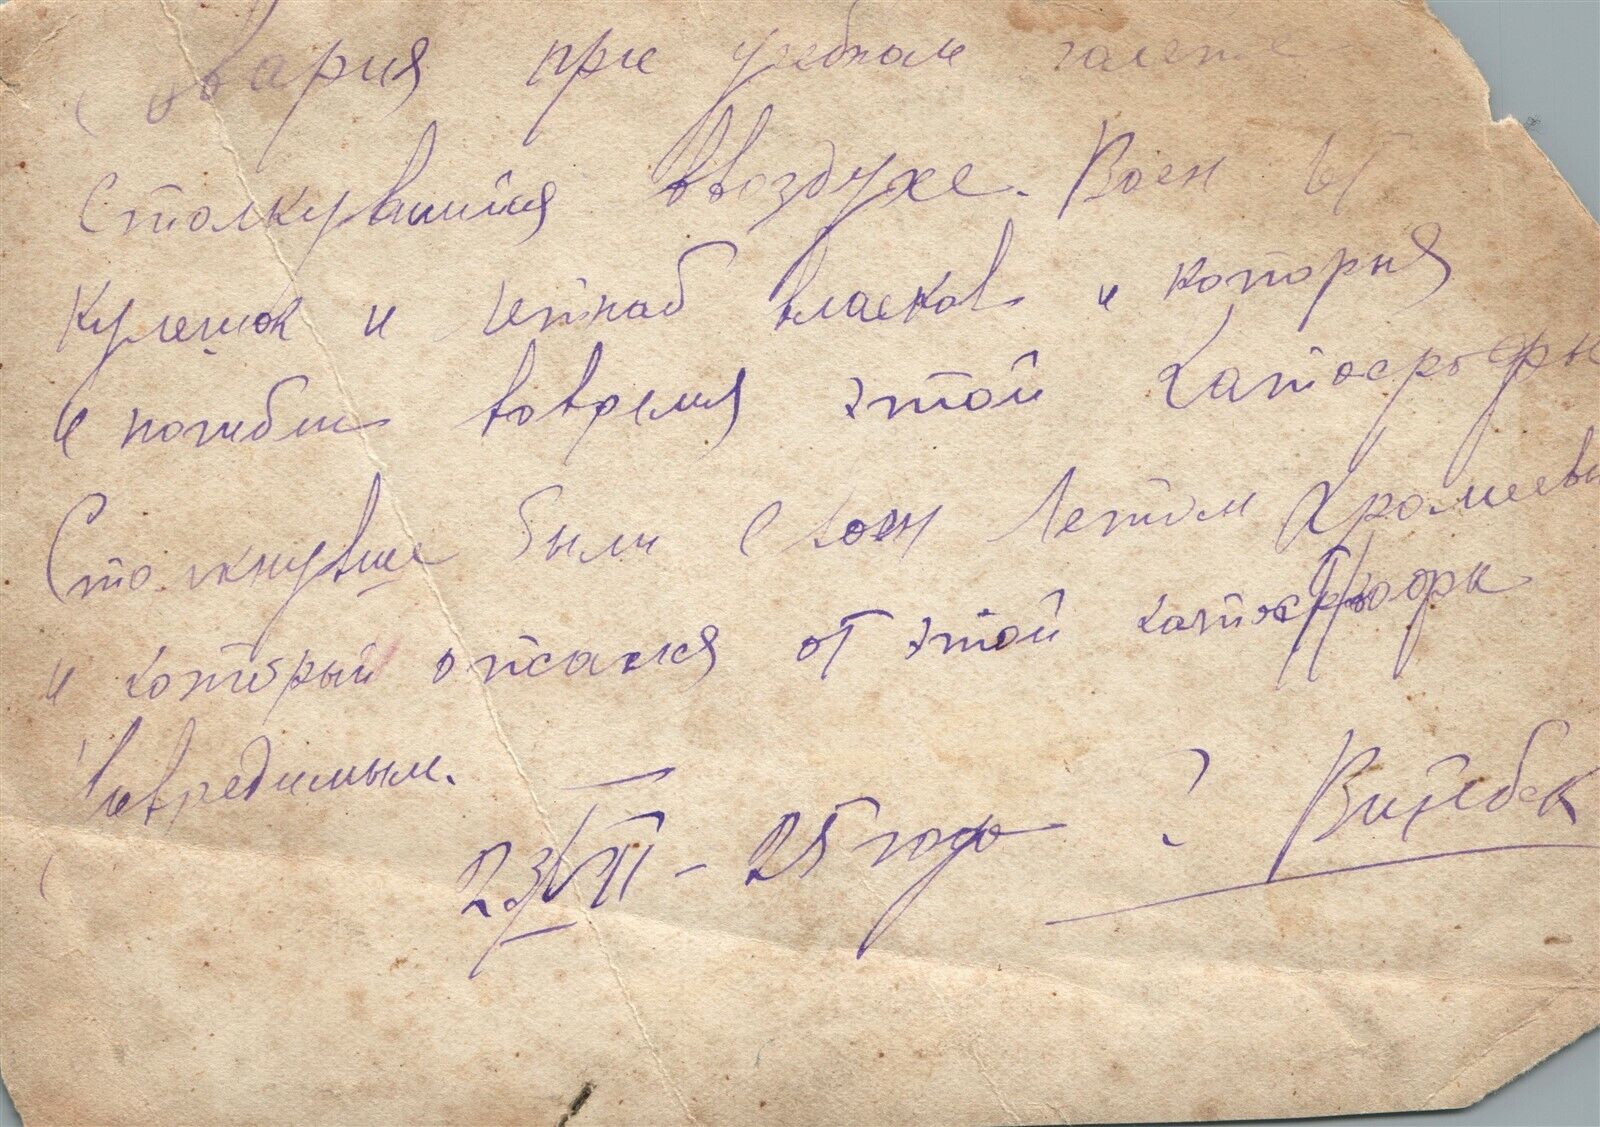 Авария при учебном полете
Столкувшийся ввоздухе. Воен Лт
Кулешок и летнаб власков и которыя
и погибли вовремя этой Катосрофы
Столкнувше были с воен Летчм Хромееvы
и который отсался от этой катосрофы
невредимым.
23/VII – 25 года г. Витебск